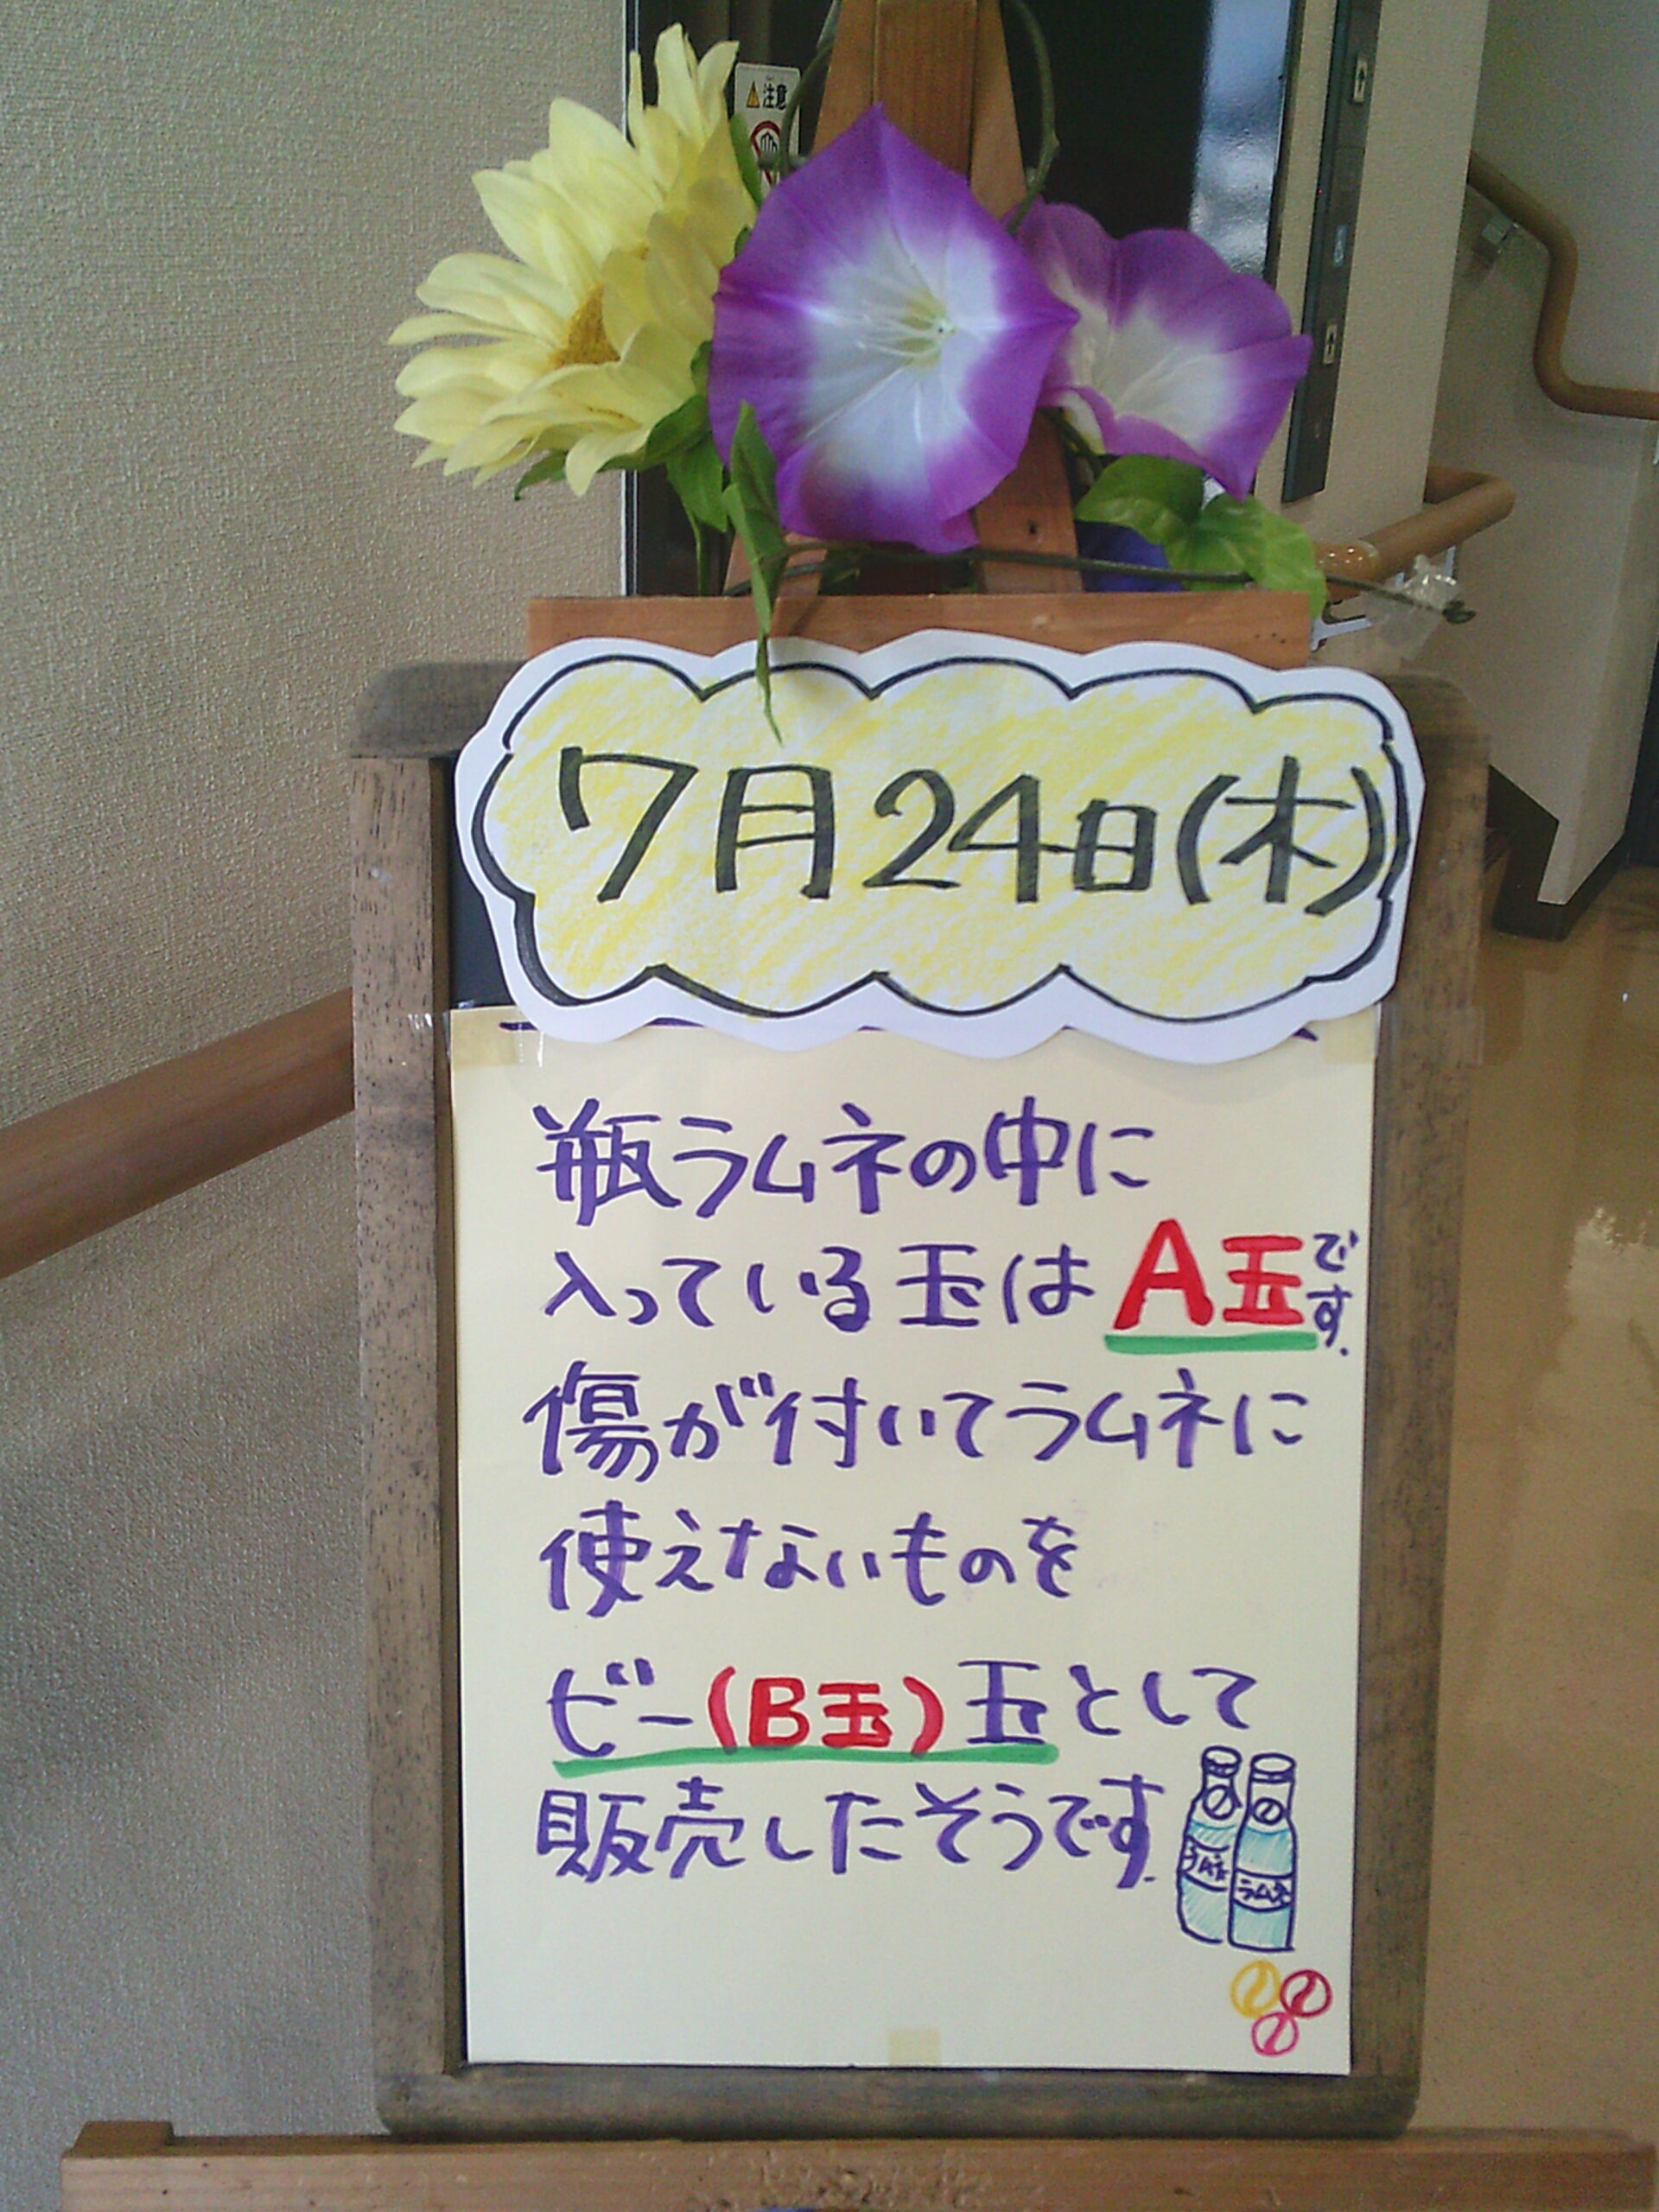 注意
7月24日(木)
瓶ラムネの中に
入っている玉はA玉です.
傷が付いてラムネに
使えないものを
ビー(B玉)玉として
販売したそうです.
ラムネ
ラムネ